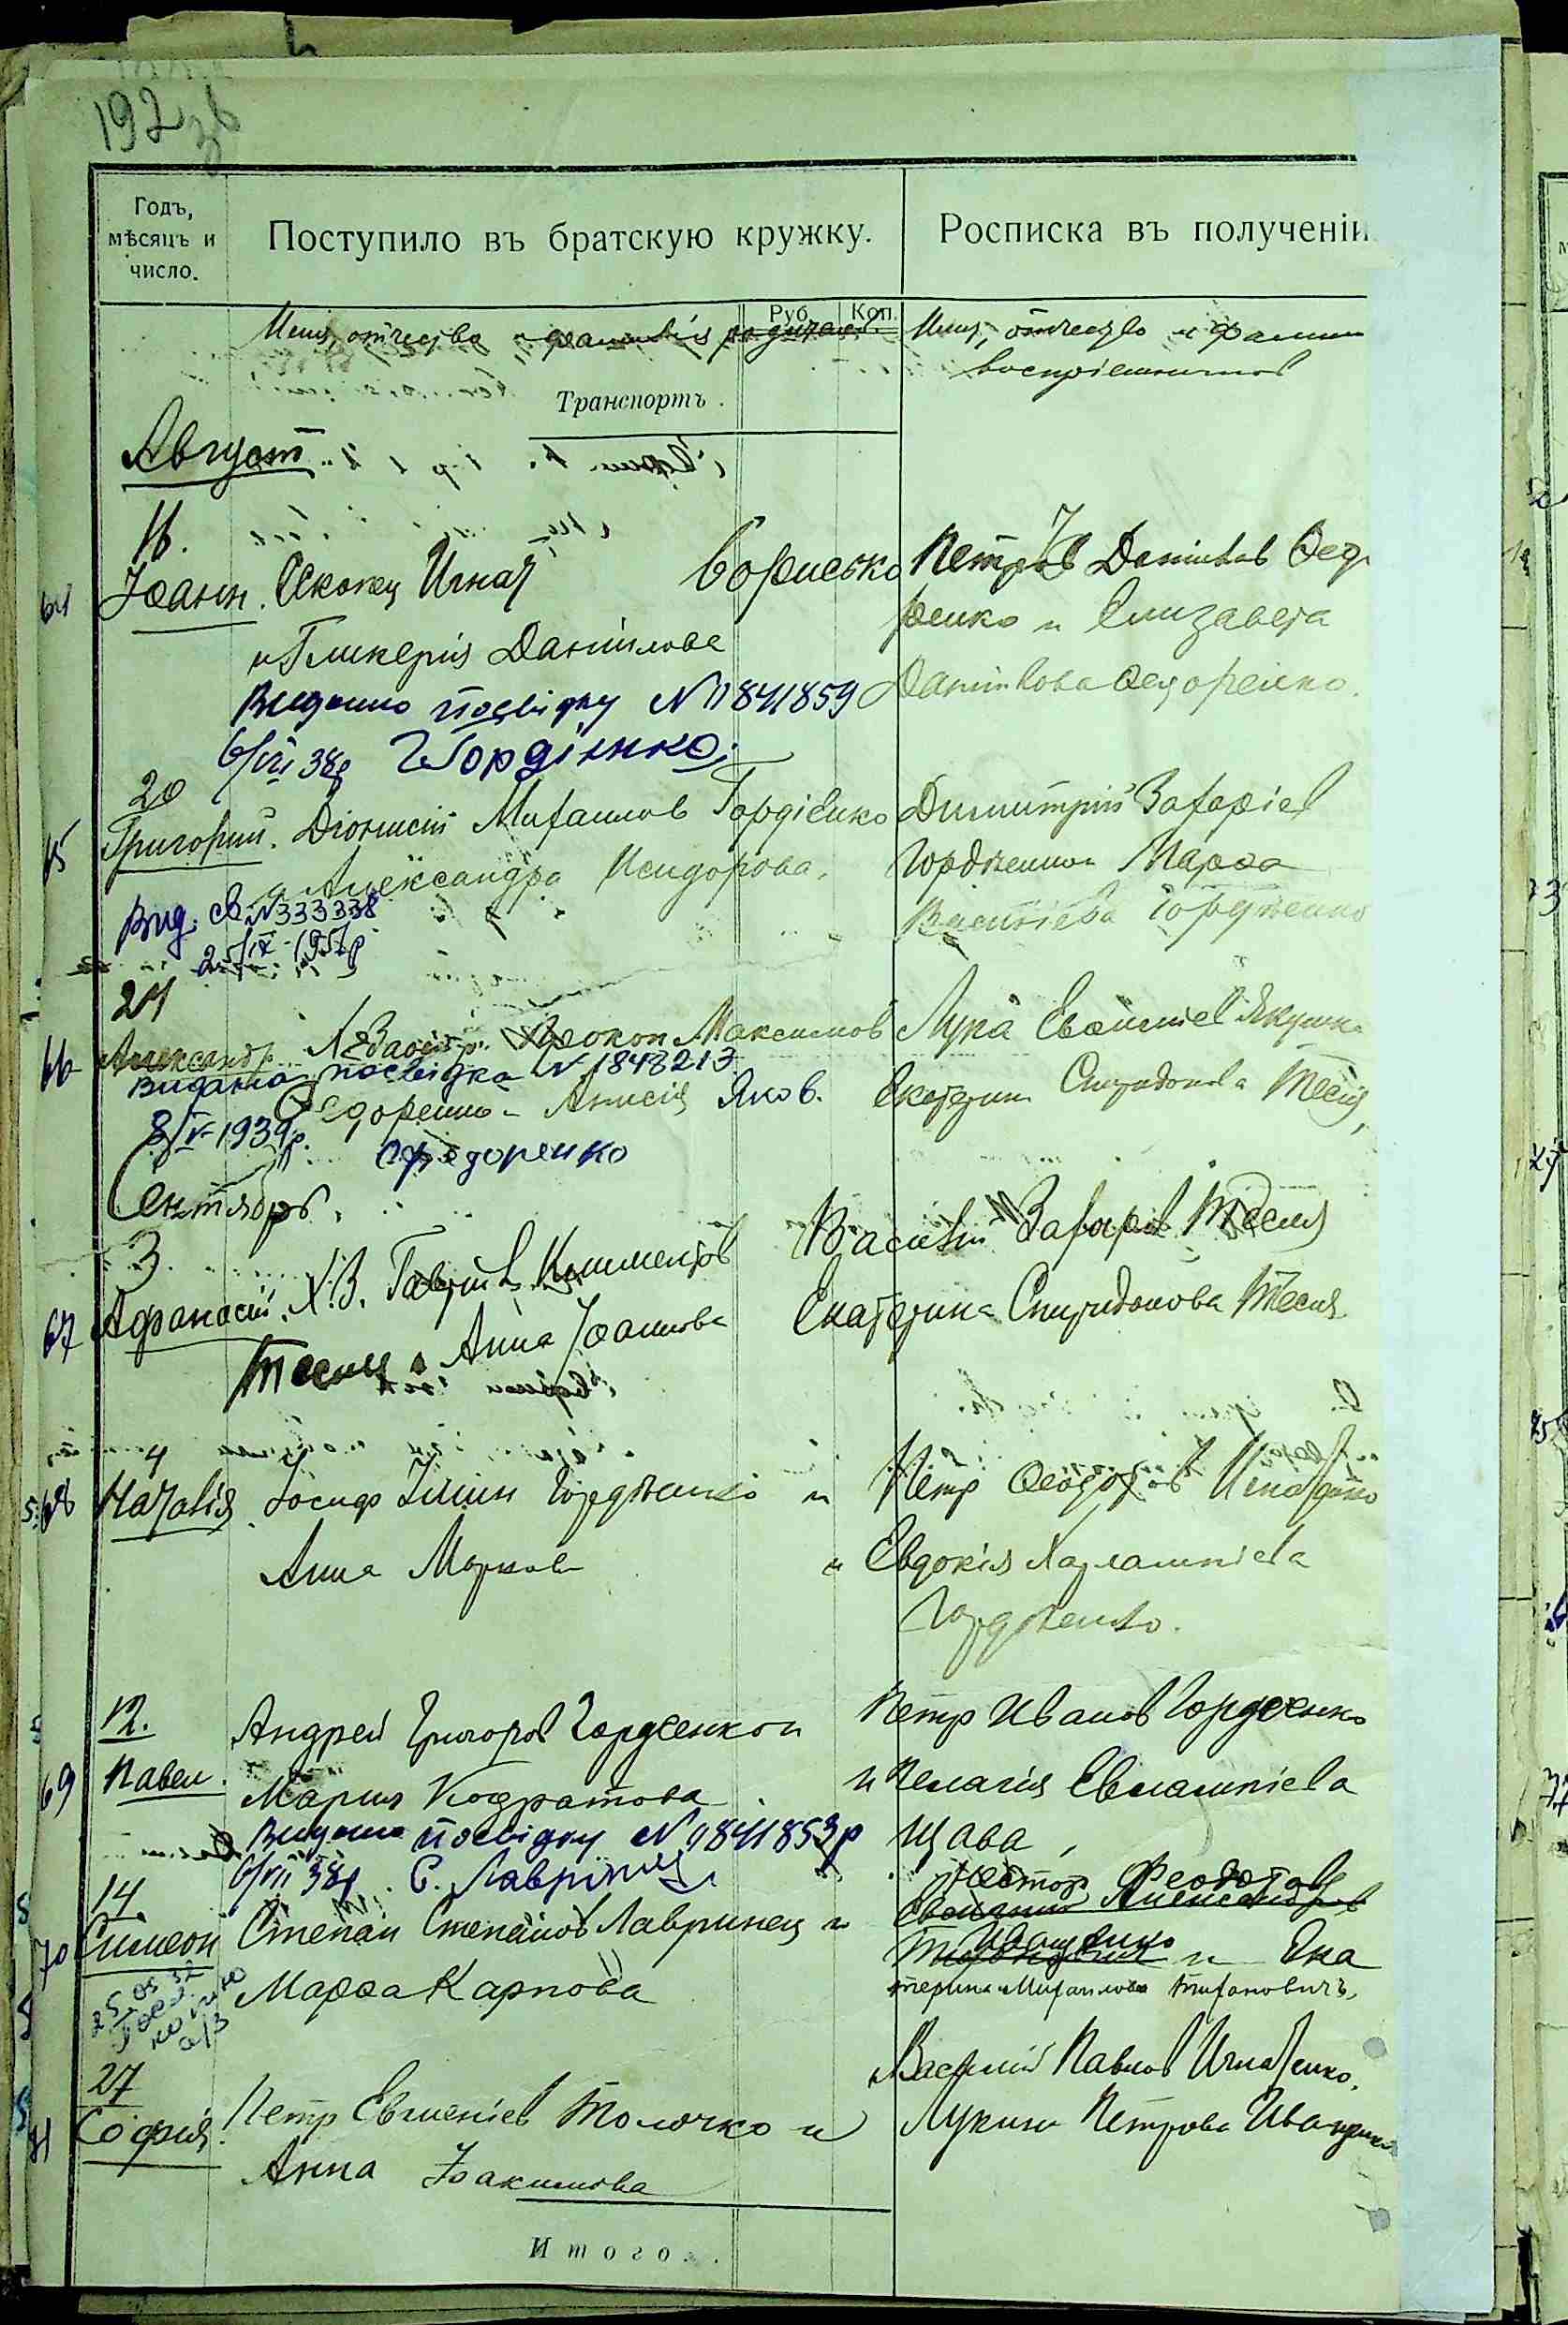 192
Годъ,
мѣсяцъ и
число.
Поступило въ братскую кружку.
Росписка въ полученіи
Руб.
Коп.
Имя, отчество и фамилія
Имя, отчество и фамил
воспріемниковъ
Транспортъ
Августъ
16.
64 Іоанн.
Игнат
Бориско
и Гликерія Данилова
Видано посвідку № 1841859
6/VII 38р Гордієнко
Петръ Даниловъ Ѳедо
ренко и Елизавета
Данилова Ѳедоренко.
20
65 Григорий. Діонисій Михаиловъ Гордіенко
и Александра Исидорова.
Вид. св №333338
25/IX-1951р
Димитрій Захаріев
Гордіенко и Марѳа
Василіева Гордіенко
21
66 Александръ
Прокоп Максимов
Видана посвідка № 1848213
Ѳедоренко и Анисія Яков.
8/V-1939р.
Федоренко
Лука
Екатерина Спиридонова Тесля,
Сентябрь.
3.
67 Афанасій. Х.В. Гавріил Климентов
Тесля и Анна Іоаннова
Василій Захаріев Тесля
Екатерина Спиридонова Тесля
4
68 Наталія
Іосиф Ілиин Гордѣенко и
Анна Маркова
Петр Ѳеодоров Игнатенко
и Евдокія Харлампіева
Гордѣенко.
12.
69 Павел.
Андрей Григоров Гордеенко и
Мария Кодратова
Видано посвідку № 1841853р
6/VII 38р. С. Лаврінец
Петр Иванов Гордеенко
и Пелагія Евлампіева
Щава
14.
70 Симеон
Степан Степанов Лавринец и
Марѳа Карпова
25.03.32
Нестор Феодотов
Иващенко
и Ека
терина Михаилова Тихановичъ,
27
71 Софія.
Петр Евгеніев Толочко и
Анна Іоакимова
Василий Павлов Игнатенко.
Лукия Петрова Иващенко
Итого